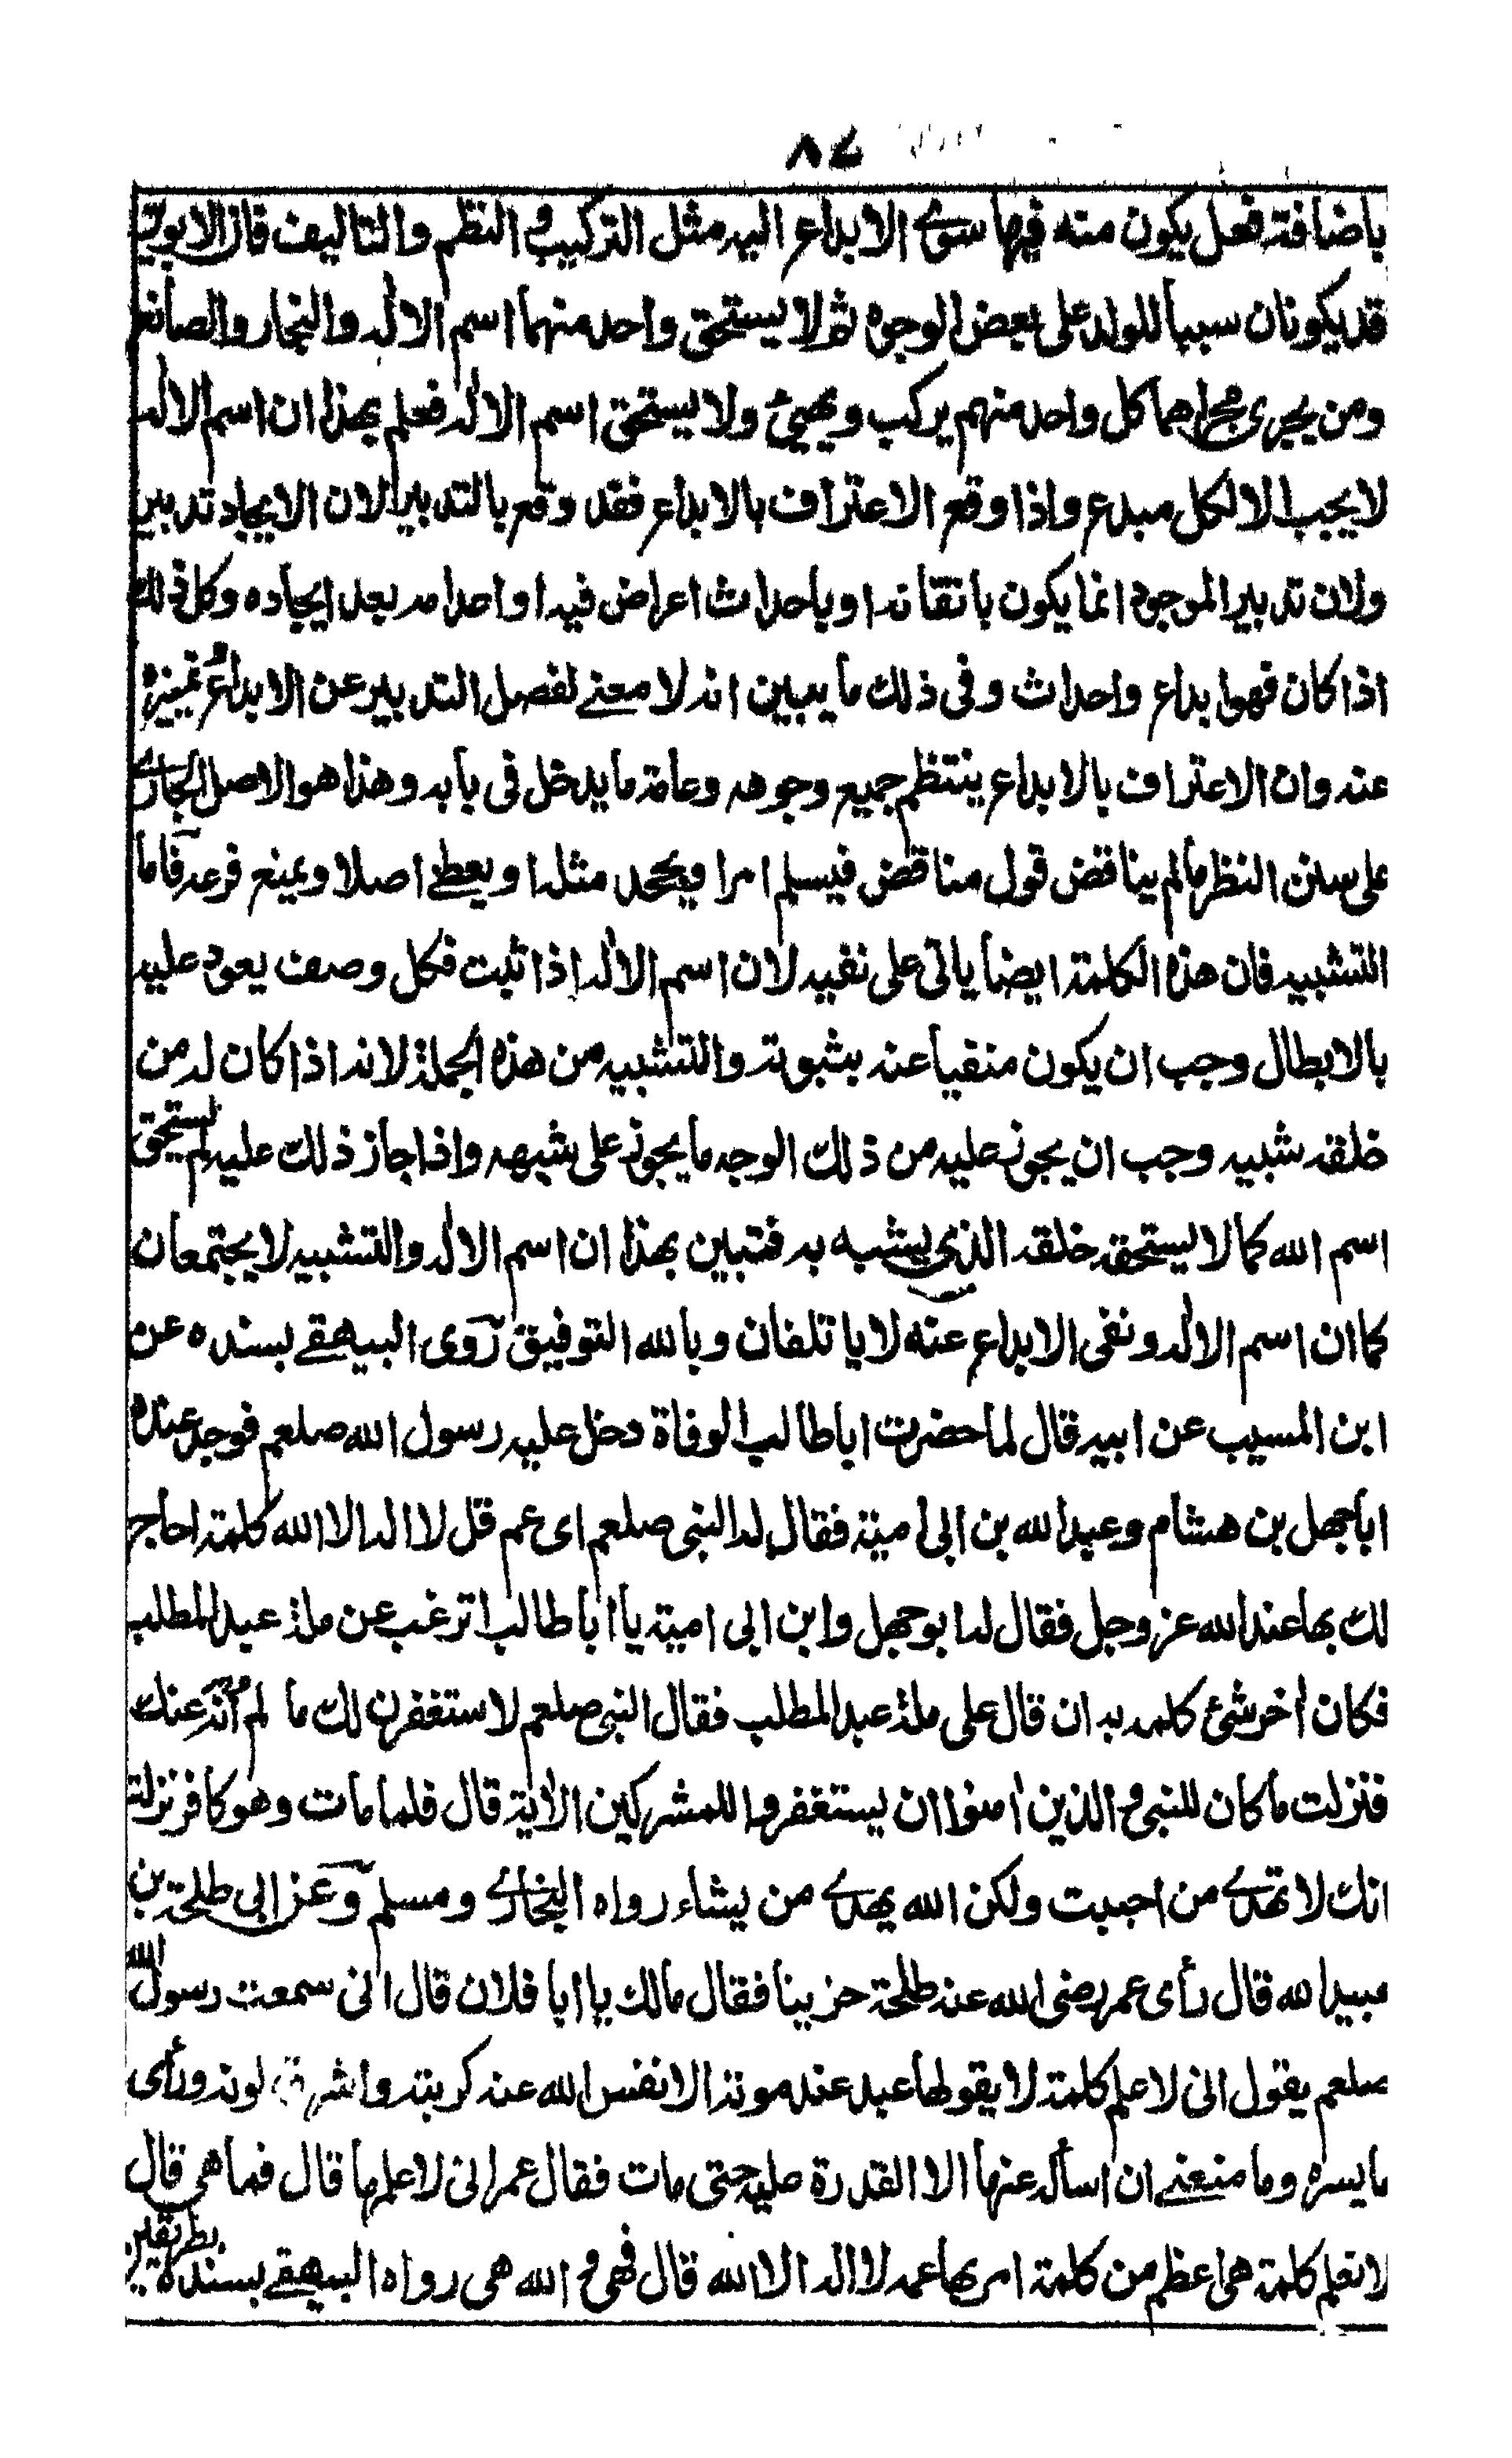 ٨٧
باضافة فعل يكون منه فيها سوى الابداع اليه مثل التركيب و النظم والتاليف فان الابوين
قد يكونان سببا للولد على بعض الوجوه ثم لا يستحق واحد منهما اسم الاله والنجار والصائغ
ومن يجرى مجراهما كل واحد منهم يركب ويهيئ ولا يستحق اسم الاله فعلم بهذا ان اسم الاله
لا يجب الا لكل مبدع واذا وقع الاعتراف بالابداع فقد وقع بالتدبير لان الايجاد تدبير
ولان تدبير الموجود انما يكون باتقانه او باحداث اعراض فيه او احدامه بعد ايجاده وكل ذلك
اذا كان فهو ابداع واحداث وفى ذلك ما يبين انه لا معنے لفصل التدبير عن الابداع وتميزه
عنه وان الاعتراف بالابداع ينتظم جميع وجوهه وعامة ما يدخل فى بابه وهذا هو الاصل الجارى
على سنن النظر مالم يناقض قول مناقض فيسلم امرا ويجحد مثله او يعطے اصلا ويمنع فرعه فاما
التشبيه فان هذه الكلمة ايضا ياتى على نفيه لان اسم الاله اذا ثبت فكل وصف يعود عليه
بالابطال وجب ان يكون منفيا عنه بثبوته والتشبيه من هذه الجملة لانه اذا كان له من
خلقه شبيه وجب ان يجوز عليه من ذلك الوجه ما يجوز على شبهه واذا جاز ذلك عليه لم يستحق
اسم الله كما لا يستحقه خلقه الذى يشبه به فتبين بهذا ان اسم الاله والتشبيه لا يجتمعان
كما ان اسم الاله ونفى الابداع عنه لا ياتلفان وبالله التوفيق روى البيهقے بسنده عن
ابن المسيب عن ابيه قال لما حضرت ابا طالب الوفاة دخل عليه رسول الله صلعم فوجد عنده
ابا جهل بن هشام وعبد الله بن ابى امية فقال له النبى صلعم اى عم قل لا اله الا الله كلمة احاج
لك بها عند الله عز وجل فقال له ابو جهل وابن ابى امية يا ابا طالب اترغب عن ملة عبد المطلب
فكان اخر شئ كلمه به ان قال على ملة عبد المطلب فقال النبى صلعم لاستغفرن لك ما لم انه عنك
فنزلت ما كان للنبى و الذين امنوا ان يستغفروا للمشركين الاية قال فلما مات وهو كافر نزلت
انك لا تهدى من احببت ولكن الله يهدے من يشاء رواه البخارے ومسلم وعن ابى طلحة بن
عبيد الله قال رأى عمر رضى الله عنه طلحة حزينا فقال مالك يا ابا فلان قال انى سمعت رسول الله
صلعم يقول انى لا علم كلمة لا يقولها عبد عند موته الا نفس الله عنه كربته واشرق لونه ورأى
ما يسره وما منعنے ان اسأله عنها الا القدرة عليه حتى مات فقال عمر انى لا علمها قال فما هى قال
لا نعلم كلمة هى اعظم من كلمة امر بها عمه لا اله الا الله قال فهى و الله هى رواه البيهقے بسنده بطريقين